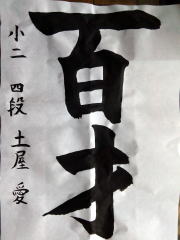 百才
小二 四段 土屋 愛